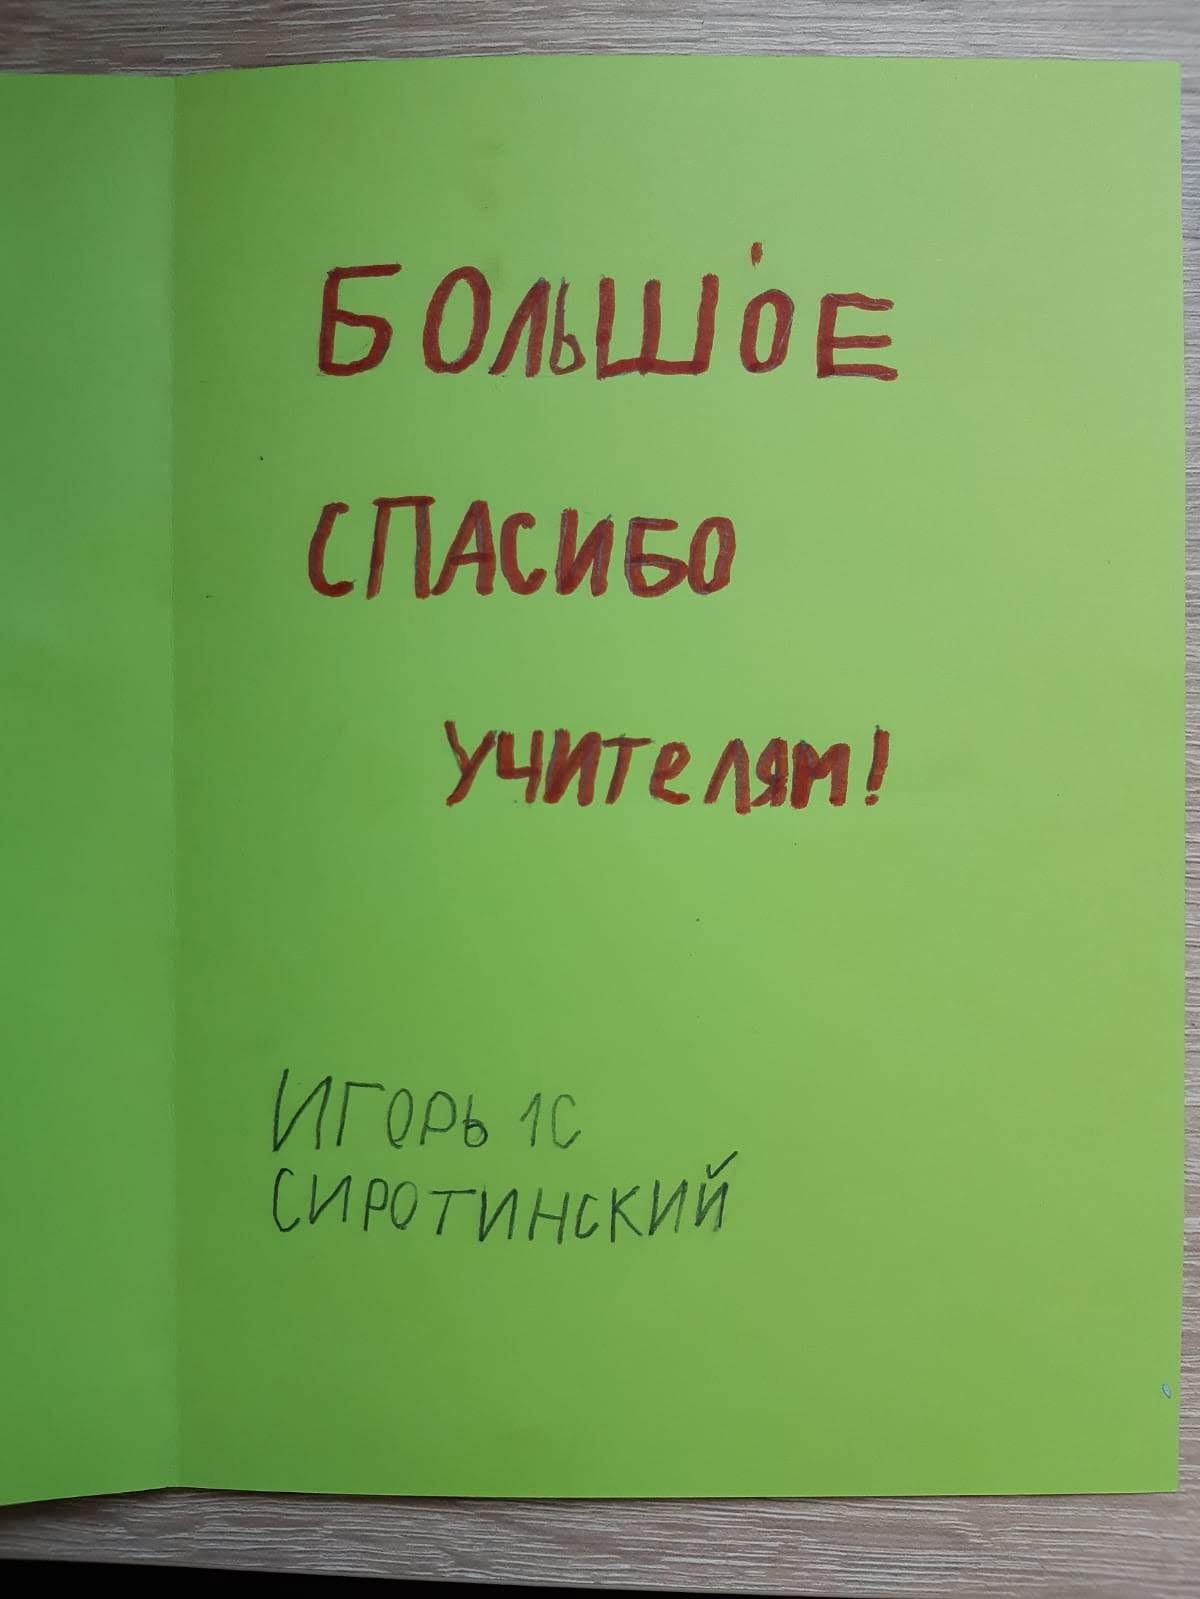 БОЛЬШОЕ
СПАСИБО
УЧИТЕЛЯМ!
ИГОРЬ 1С
СИРОТИНСКИЙ